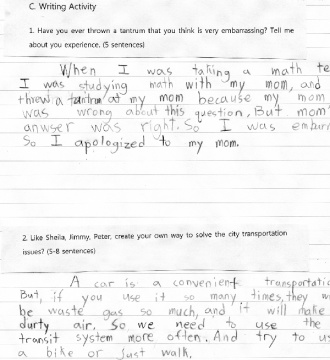 C. Writing Activity
1. Have you ever thrown a tantrum that you think is very embarrassing? Tell me
about you experience. (5 sentences)
When I was taking a math te
I was studying math with my mom, and
threw a tantrum at my mom because my mom
was wrong about this question, But mom'
anwser was right. So I was embarr
So I apologized to my mom.
2. Like Sheila, Jimmy, Peter, create your own way to solve the city transportation
issues? (5-8 sentences)
A car is a convenient transportatio
But, if you use it so many times, they w
be waste gas so much, and it will make
durty air. So we need to use the
transit system more often. And try to us
a bike or just walk.